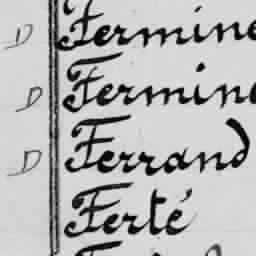 D Fermine
D Fermine
D Ferrand
Ferté